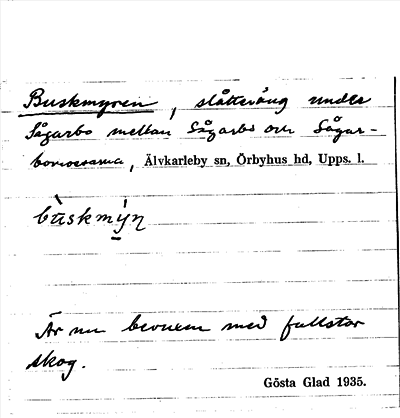 Buskmyren, slåtteräng under
Sågarbo mellan Sågarbo och Sågar-
bomossarna, Älvkarleby sn, Örbyhus hd, Upps. l.
bùskmýn̥
Är nu bevuxen med fullstor
skog.
Gösta Glad 1935.